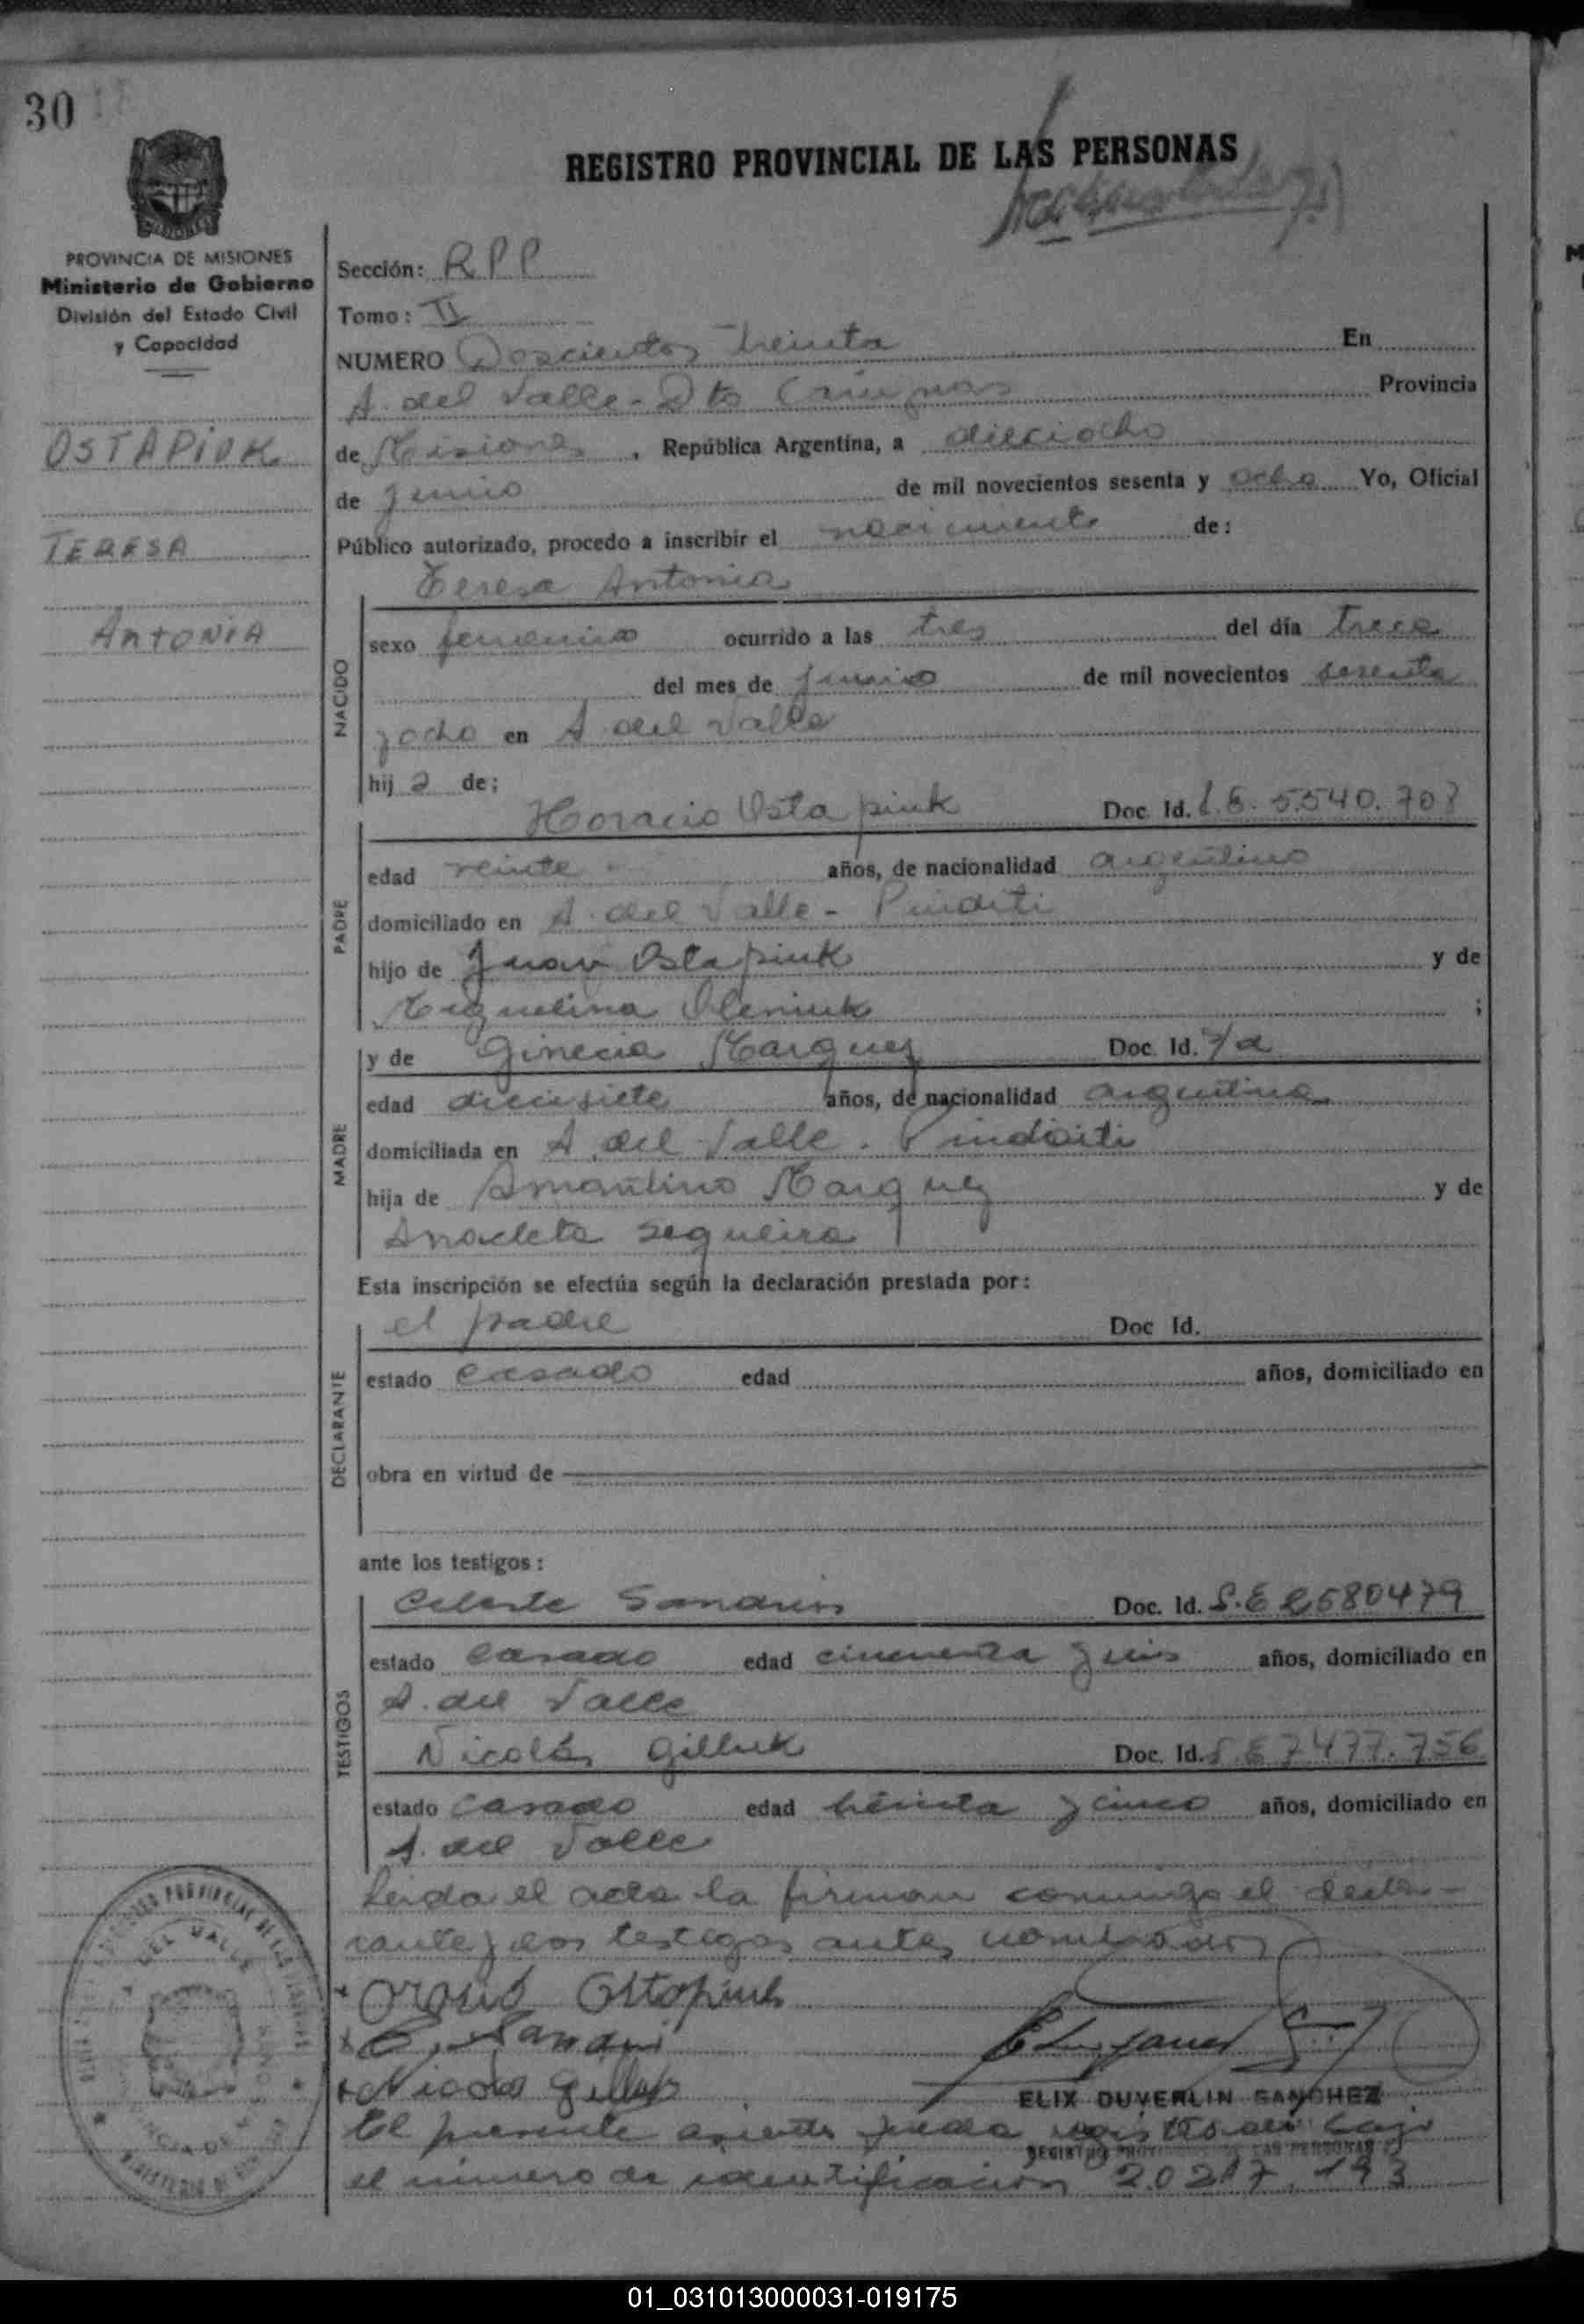 30
REGISTRO PROVINCIAL DE LAS PERSONAS
PROVINCIA DE MISIONES
Ministerio de Gobierno
División del Estado Civil
y Capacidad
OSTAPIUK
TERESA
ANTONIA
Sección: RPP
Tomo: II
NUMERO Doscientos treinta En
A. del Valle - Dto Cainguas Provincia
de Misiones, República Argentina, a dieciocho
de junio de mil novecientos sesenta y ocho Yo, Oficial
Público autorizado, procedo a inscribir el nacimiento de:
Teresa Antonia
NACIDO
sexo femenino ocurrido a las tres del día trece
del mes de junio de mil novecientos sesenta
y ocho en A del Valle
hij a de:
Horacio Ostapiuk Doc. Id. L.E. 5.540.707
PADRE
edad veinte años, de nacionalidad argentino
domiciliado en A. del Valle - Pindaiti
hijo de Juan Ostapiuk y de
Miguelina Oleniuk ;
y de Ginecia Marquez Doc. Id.
MADRE
edad diecisiete años, de nacionalidad argentina
domiciliada en A. del Valle. Pindaiti
hija de Amantino Marquez y de
Anacleta Sequeira
Esta inscripción se efectúa según la declaración prestada por:
el padre Doc Id.
DECLARANTE
estado casado edad años, domiciliado en
obra en virtud de
ante los testigos:
Celeste Sandrin Doc. Id. L.E 2580479
TESTIGOS
estado casado edad cincuenta y años, domiciliado en
A. del Valle
Nicolás Gilluk Doc. Id. L.E 7477.756
estado casado edad treinta y cinco años, domiciliado en
A. del Valle
Leida el acta la firman conmigo el decla-
rante y los testigos antes nombrados
Orasio Ostapiuk
C. Sandrin
Nicolas Gilluk
ELIX DUVERLIN SANCHEZ
El presente asiento queda registrado bajo
REGISTRO PROVINCIAL DE LAS PERSONAS
el número de identificación 20.217.193
DEL VALLE
01_031013000031-019175